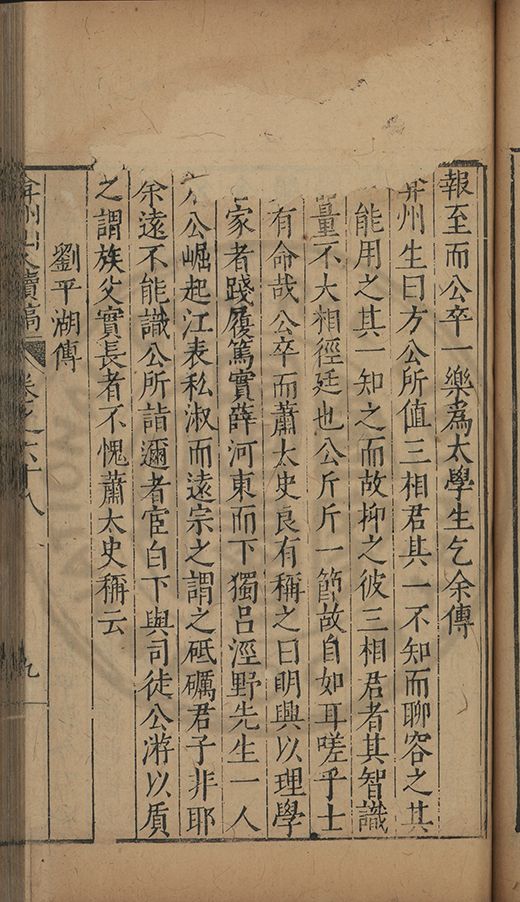 報至而公卒一樂爲太學生乞余傳
弇州生曰方公所值三相君其一不知而聊容之其
能用之其一知之而故抑之彼三相君者其智識
量不大相徑廷也公斤斤一節故自如耳嗟乎士
有命哉公卒而蕭太史良有稱之曰明興以理學
家者踐履篤實薛河東而下獨呂涇野先生一人
公崛起江表私淑而遠宗之謂之砥礪君子非耶
余遠不能識公所詣邇者宦白下與司徒公游以質
之謂族父實長者不愧蕭太史稱云
劉平湖傳
弇州山人續稿
卷之六十八
九